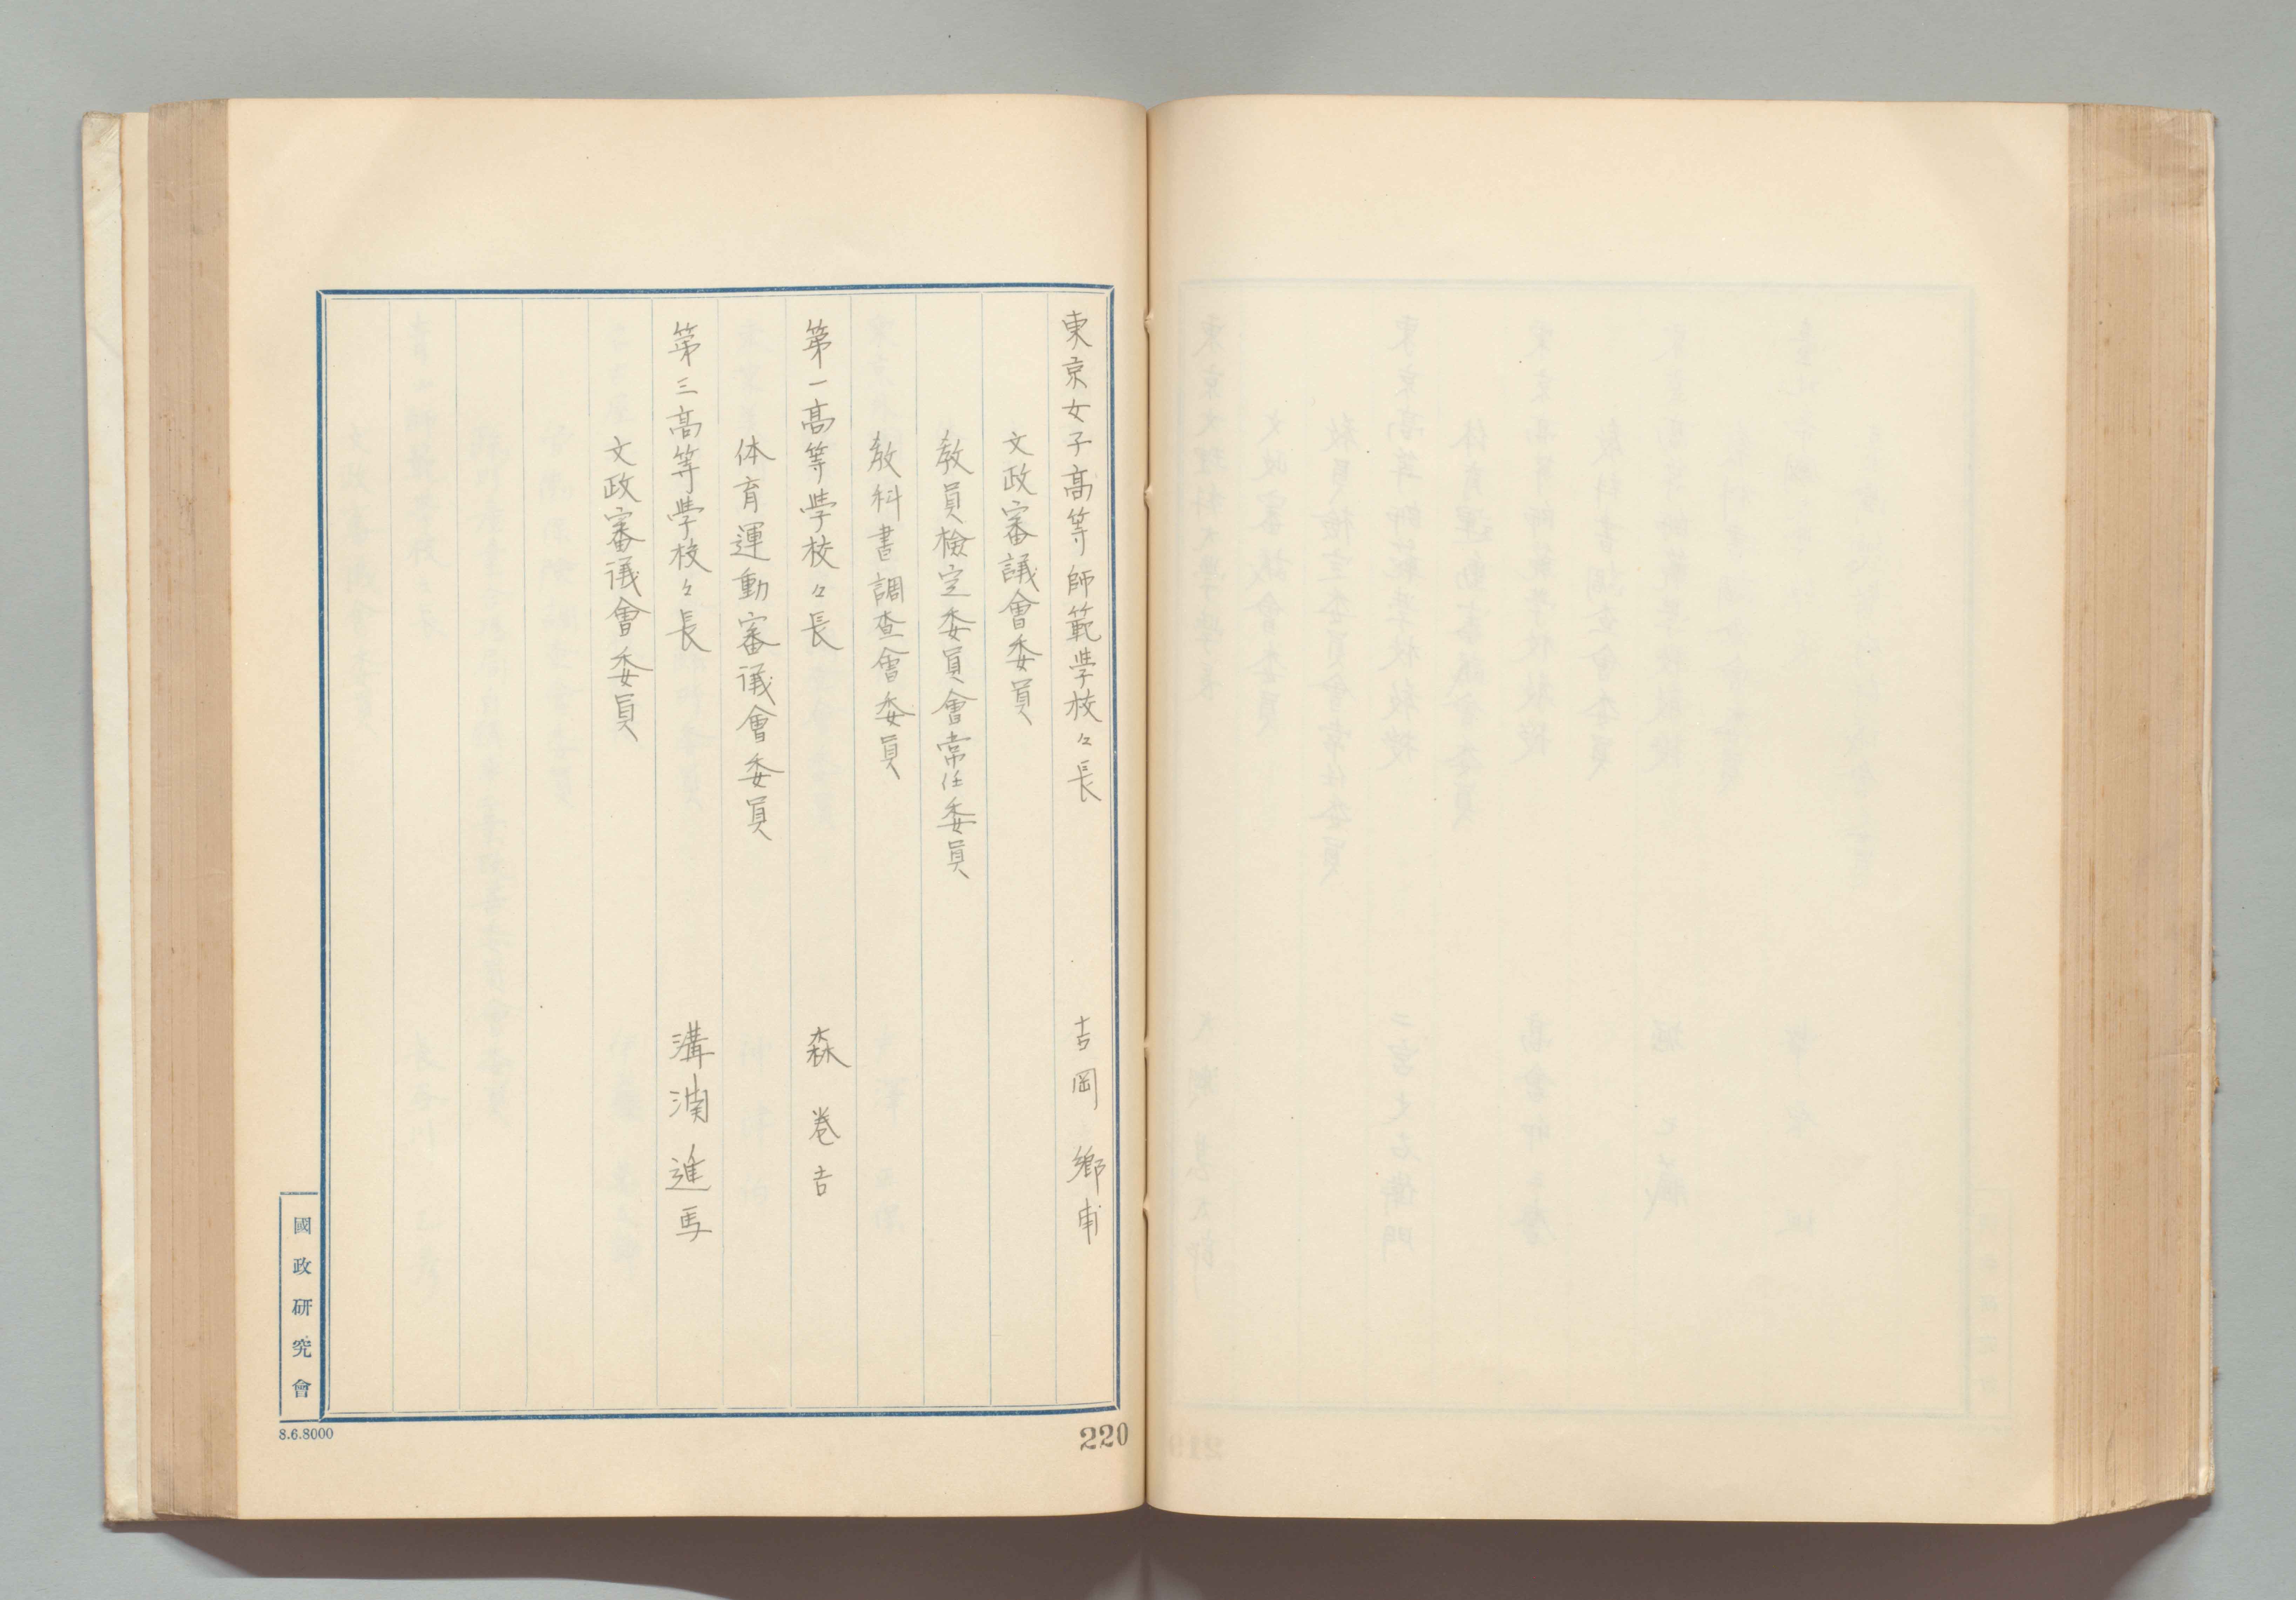 東京女子高等師範学校々長　吉岡郷甫
文政審議會委員
教員檢定委員會常任委員
教科書調査會委員
第一高等学校々長　森巻吉
体育運動審議會委員
第三高等学校々長　溝渕進馬
文政審議會委員
國政研究會
8.6.8000
220